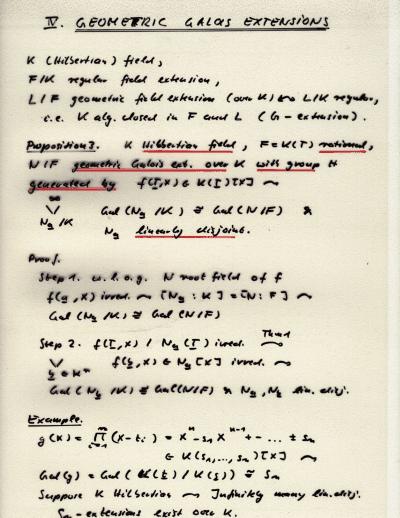 IV. GEOMETRIC GALOIS EXTENSIONS
K (Hilbertian) field,
F/K regular field extension,
L/F geometric field extension (over K) ⇔ L/K regular,
i.e. K alg. closed in F and L (G-extension).
Proposition 3. K Hilbertian field, F=K(T) rational,
N/F geometric Galois ext. over K with group H
generated by f(T,X) ∈ K(T)[X] ⤳
∞
∨ Gal(N_ξ/K) ≅ Gal(N/F) &
N_ξ/K N_ξ linearly disjoint.
Proof.
Step 1. w.l.o.g. N root field of f
f(ξ,X) irred. ⤳ [N_ξ:K]=[N:F] ⤳
Gal(N_ξ/K) ≅ Gal(N/F)
Step 2. f(T,X) / N_ξ(T) irred. Thm 1 ⤳
∨ f(ξ,X) ∈ N_ξ[X] irred. ⤳
Gal(N_ξ/K) ≅ Gal(N/F) & N_ξ, N_ξ lin. disj.
Example.
g(X) = ∏(X-t_i) = X^n - s_1 X^{n-1} + - ... ± s_n
∈ K(s_1,...,s_n)[X] ⤳
Gal(g) = Gal(K(t)/K(s)) ≅ S_n
Suppose K Hilbertian ⤳ Infinitely many lin. disj.
S_n-extensions exist over K.